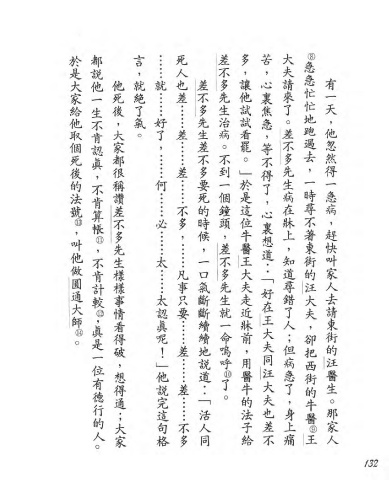 有一天，他忽然得一急病，趕快叫家人去請東街的汪醫生。那家人
⑧急急忙忙地跑過去，一時尋不著東街的汪大夫，卻把西街的牛醫⑨王
大夫請來了。差不多先生病在牀上，知道尋錯了人；但病急了，身上痛
苦，心裏焦急，等不得了，心裏想道：「好在王大夫同汪大夫也差不
多，讓他試試看罷。」於是這位牛醫王大夫走近牀前，用醫牛的法子給
差不多先生治病。不到一個鐘頭，差不多先生就一命嗚呼⑩了。
差不多先生差不多要死的時候，一口氣斷斷續續地說道：「活人同
死人也差……差……差……不多，……凡事只要……差……差……不多
……就……好了，……何……必……太……太認真呢！」他說完這句格
言，就絕了氣。
他死後，大家都很稱讚差不多先生樣樣事情看得破，想得通；大家
都說他一生不肯認真，不肯算帳⑪，不肯計較⑫，真是一位有德行的人。
於是大家給他取個死後的法號⑬，叫他做圓通大師⑭。
132